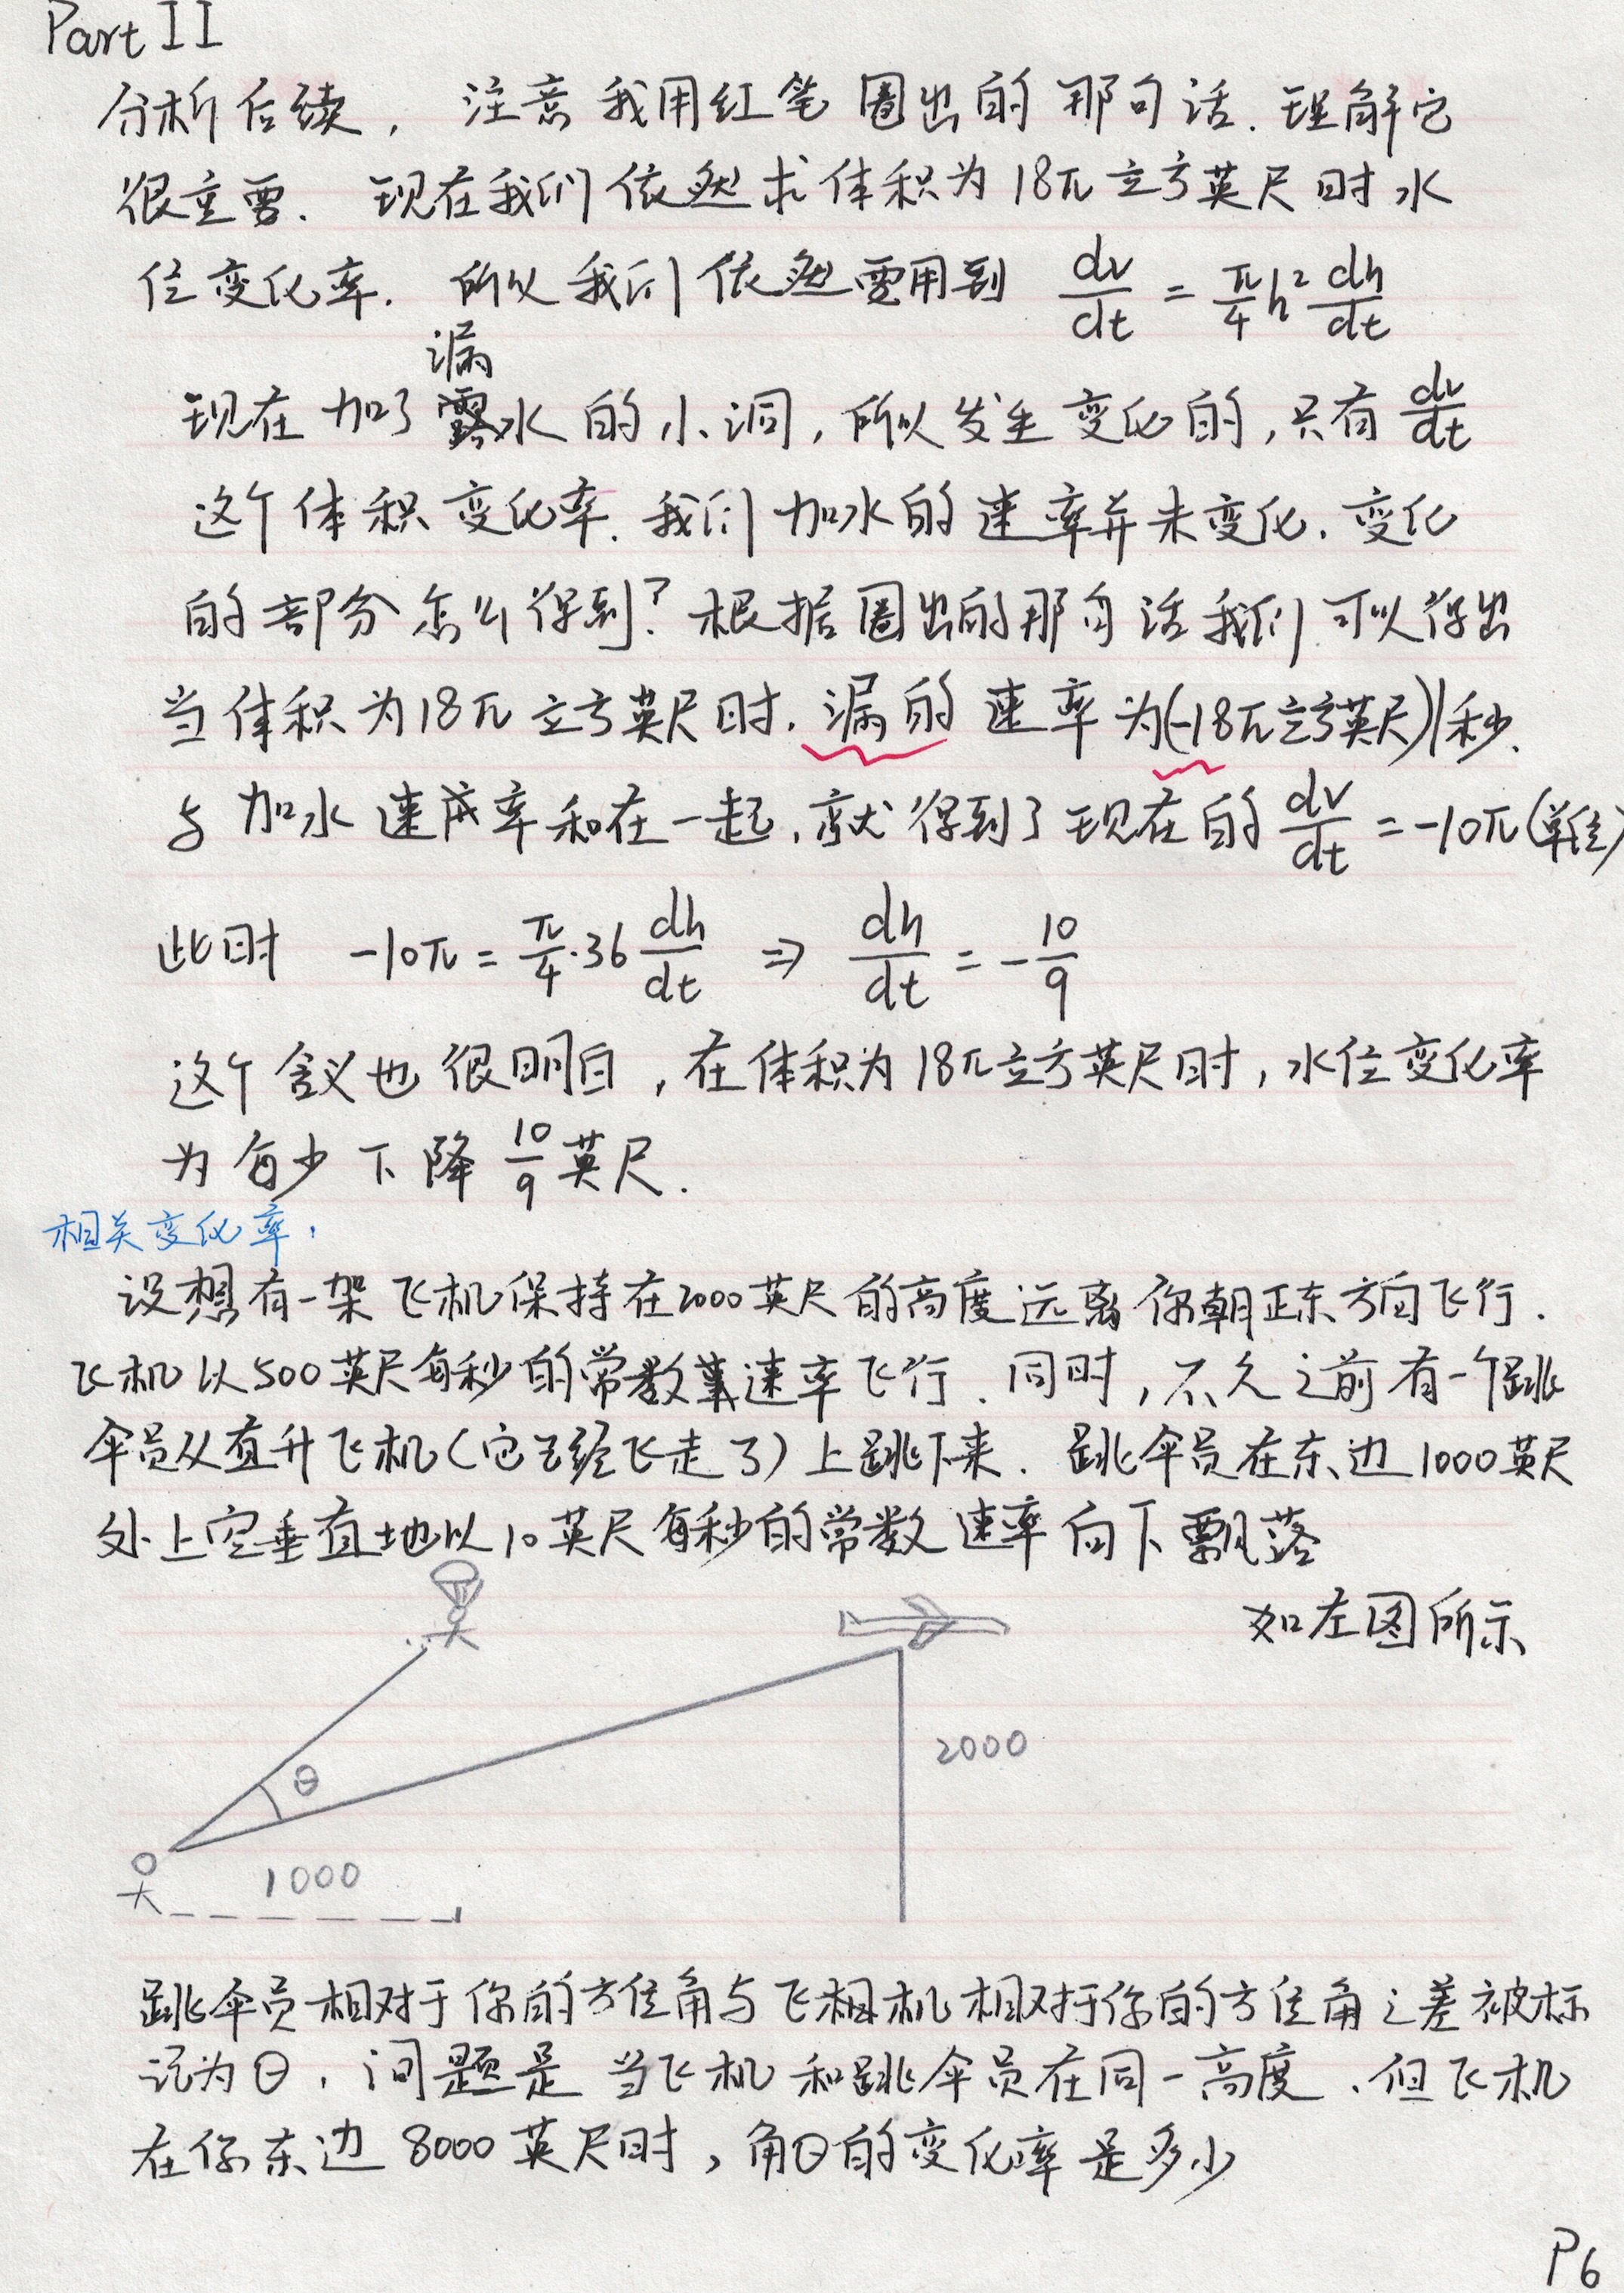 Part II
分析后续， 注意我用红笔圈出的那句话. 理解它
很重要. 现在我们依然求体积为18π立方英尺时水
位变化率. 所以我们依然要用到 dv/dt = π/4 h² dh/dt
漏
现在加了水的小洞, 所以发生变化的, 只有 dv/dt
这个体积变化率. 我们加水的速率并未变化. 变化
的部分怎么得到? 根据圈出的那句话我们可以得出
当体积为18π立方英尺时. 漏的速率为(-18π立方英尺)/秒.
与加水速率和在一起, 就得到了现在的 dv/dt = -10π(单位)
此时 -10π = π/4·36 dh/dt ⇒ dh/dt = -10/9
这个含义也很明白, 在体积为18π立方英尺时, 水位变化率
为每少下降 10/9 英尺.
相关变化率:
设想有一架飞机保持在2000英尺的高度远离你朝正东方向飞行.
飞机以500英尺每秒的常数速率飞行. 同时, 不久之前有一个跳
伞员从直升飞机(它已经飞走了)上跳下来. 跳伞员在东边1000英尺
处上空垂直地以10英尺每秒的常数速率向下飘落
如左图所示
θ
2000
1000
跳伞员相对于你的方位角与飞机相对于你的方位角之差被标
记为θ. 问题是 当飞机和跳伞员在同一高度. 但飞机
在你东边8000英尺时, 角θ的变化率是多少
P6